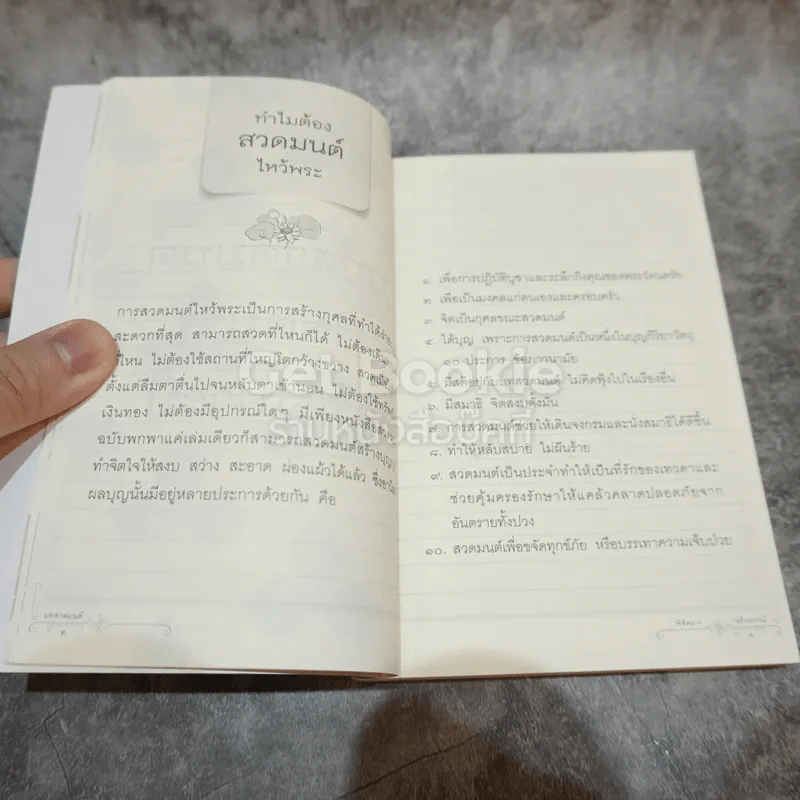 ทำไมต้อง
สวดมนต์
ไหว้พระ
การสวดมนต์ไหว้พระเป็นการสร้างกุศลที่ทำได้
สะดวกที่สุด สามารถสวดที่ไหนก็ได้ ไม่ต้อง
ไหน ไม่ต้องใช้สถานที่ใหญ่โตกว้างขวาง สวด
ตั้งแต่ลืมตาตื่นไปจนหลับตาเข้านอน ไม่ต้องใช้
เงินทอง ไม่ต้องมีอุปกรณ์ใดๆ มีเพียงหนังสือ
ฉบับพกพาแค่เล่มเดียวก็สามารถสวดมนต์สร้างบุญ
ทำจิตใจให้สงบ สว่าง สะอาด ผ่องแผ้วได้แล้ว
ผลบุญนั้นมีอยู่หลายประการด้วยกัน คือ
บทสวดมนต์
๒
๑. เพื่อการปฏิบัติบูชาและระลึกถึงคุณของพระรัตนตรัย
๒. เพื่อเป็นมงคลแก่ตนเองและครอบครัว
๓. จิตเป็นกุศลขณะสวดมนต์
๔. ได้บุญ เพราะการสวดมนต์เป็นหนึ่งในบุญกิริยาวัตถุ
๑๐ ประการ ข้อภาวนามัย
๕. มีสติอยู่กับบทสวดมนต์ ไม่คิดฟุ้งไปในเรื่องอื่น
๖. มีสมาธิ จิตสงบตั้งมั่น
๗. การสวดมนต์ช่วยให้เดินจงกรมและนั่งสมาธิได้ดีขึ้น
๘. ทำให้หลับสบาย ไม่ฝันร้าย
๙. สวดมนต์เป็นประจำทำให้เป็นที่รักของเทวดาและ
ช่วยคุ้มครองรักษาให้แคล้วคลาดปลอดภัยจาก
อันตรายทั้งปวง
๑๐. สวดมนต์เพื่อขจัดทุกข์ภัย หรือบรรเทาความเจ็บป่วย
Get Bookie
ร้านหนังสือบุ๊คกี้